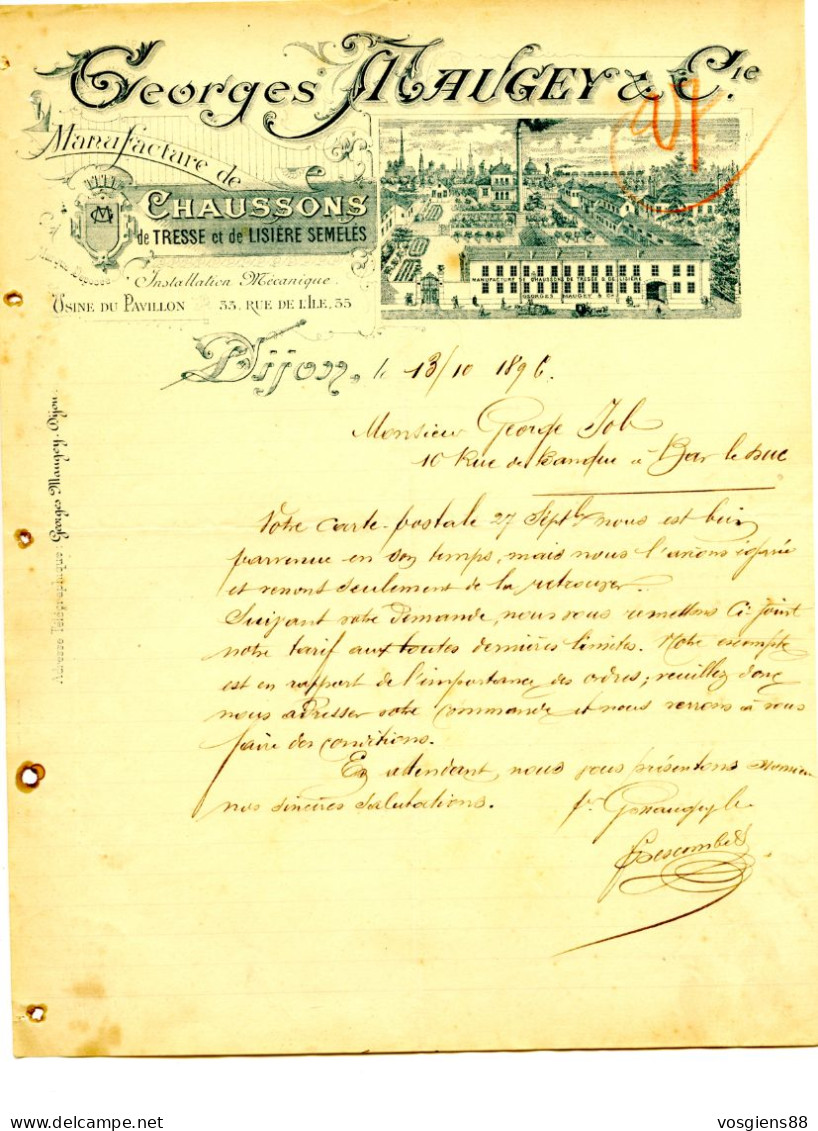 Georges Maugey & Cie.
Manufacture de
CHAUSSONS
de TRESSE et de LISIÈRE SEMELÉS
Marque Déposée
Installation Mécanique
USINE DU PAVILLON 35, RUE DE L'ILE, 35
MANUFACTURE DE CHAUSSONS DE TRESSE & DE LISIÈRE
GEORGES MAUGEY & Cie
Dijon, le 13/10 1896.
Adresse Télégraphique: Georges Maugey-Dijon.
Monsieur George Job
10 Rue de Banque à Bar le Duc
Votre carte-postale 27 Sept. nous est bien
parvenue en son temps, mais nous l'avions égarée
et venons seulement de la retrouver.
Suivant votre demande, nous vous remettons Ci-joint
notre tarif aux toutes dernières limites. Notre escompte
est en rapport de l'importance des ordres; veuillez donc
nous adresser votre commande et nous verrons à vous
faire des conditions.
En attendant, nous vous présentons Monsieur
nos sincères salutations. pr. G Maugey & Cie
vosgiens88